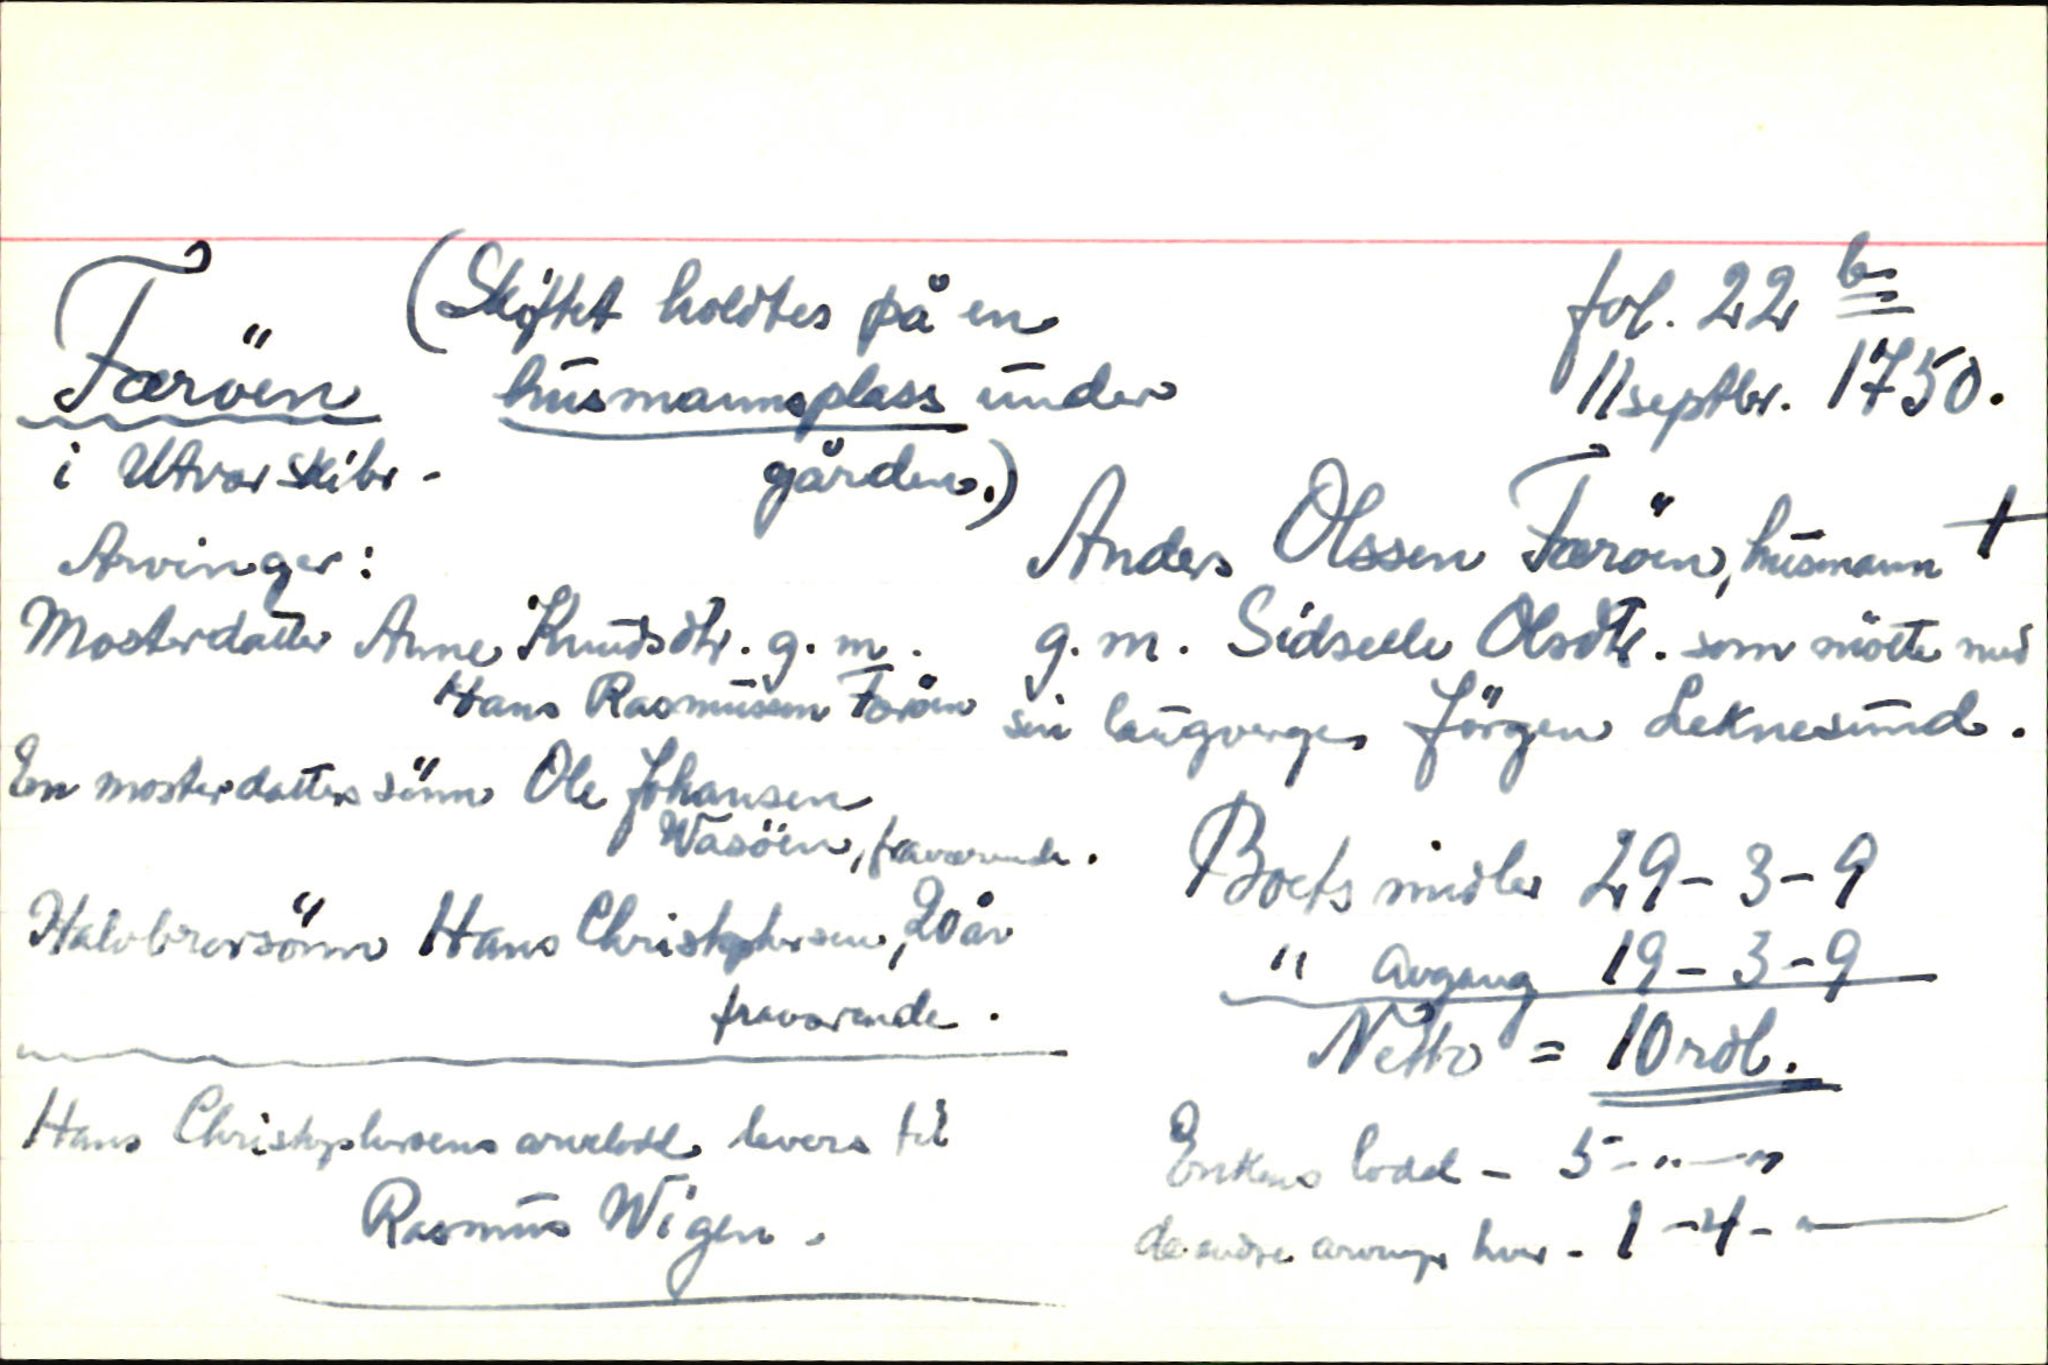 Færöen
i Utvær skibr-
(Skiftet holdtes på en
husmannsplass under
gården.)
fol. 22 b
11 septbr. 1750.
Anders Olssen Færöen, husmann †
g. m. Sidselle Olsdtr. som mötte med
sin laugverge, Jörgen Leknesund.
Arvinger:
Mosterdatter Anne Knudsdtr. g. m.
Hans Rasmussen Færöen
En mosterdatters sönn Ole Johansen
Wasöen, fraværende.
Halvbrorsönn Hans Christophersen, 20 år
fraværende.
Hans Christophersens arvelodd levera til
Rasmus Wigen.
Boets midler 29-3-9
" avgang 19-3-9
Netto = 10 rdl.
Enkens lodd - 5-"-"
de andre arvinger hver - 1-4-"